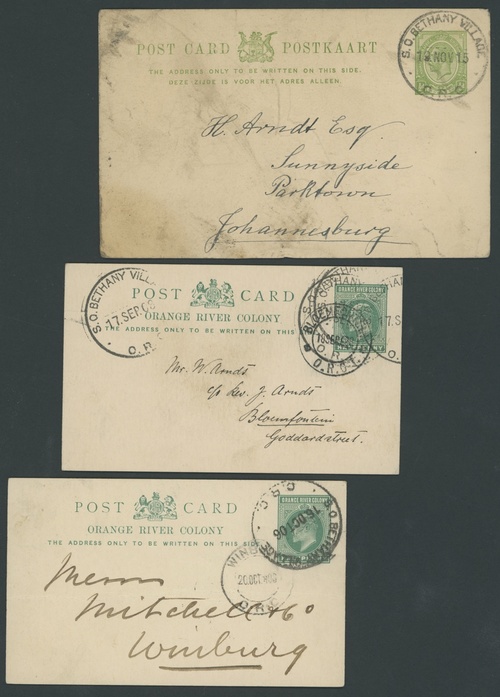 POST CARD POSTKAART
THE ADDRESS ONLY TO BE WRITTEN ON THIS SIDE.
DEZE ZIJDE IS VOOR HET ADRES ALLEEN.
S.O. BETHANY VILLAGE
13 NOV 15
O.R.C.
H. Arndt Esq.
Sunnyside
Parktown
Johannesburg
POST CARD
ORANGE RIVER COLONY
THE ADDRESS ONLY TO BE WRITTEN ON THIS
S.O. BETHANY VILLA
17. SEP
O.R.
ORANGE RIVER COLONY
BLOEMFONTEIN
O.R.C.
17. S
Mr. W. Arndts
c/o Rev. J. Arndts
Bloemfontein
Goddardstreet.
POST CARD
ORANGE RIVER COLONY
THE ADDRESS ONLY TO BE WRITTEN ON THIS SIDE.
ORANGE RIVER COLONY
S.O. BETHANY VILLAGE
16 OCT 06
O.R.C.
WINB
20 OCT
O.R.C
Messrs
Mitchell & Co
Winburg